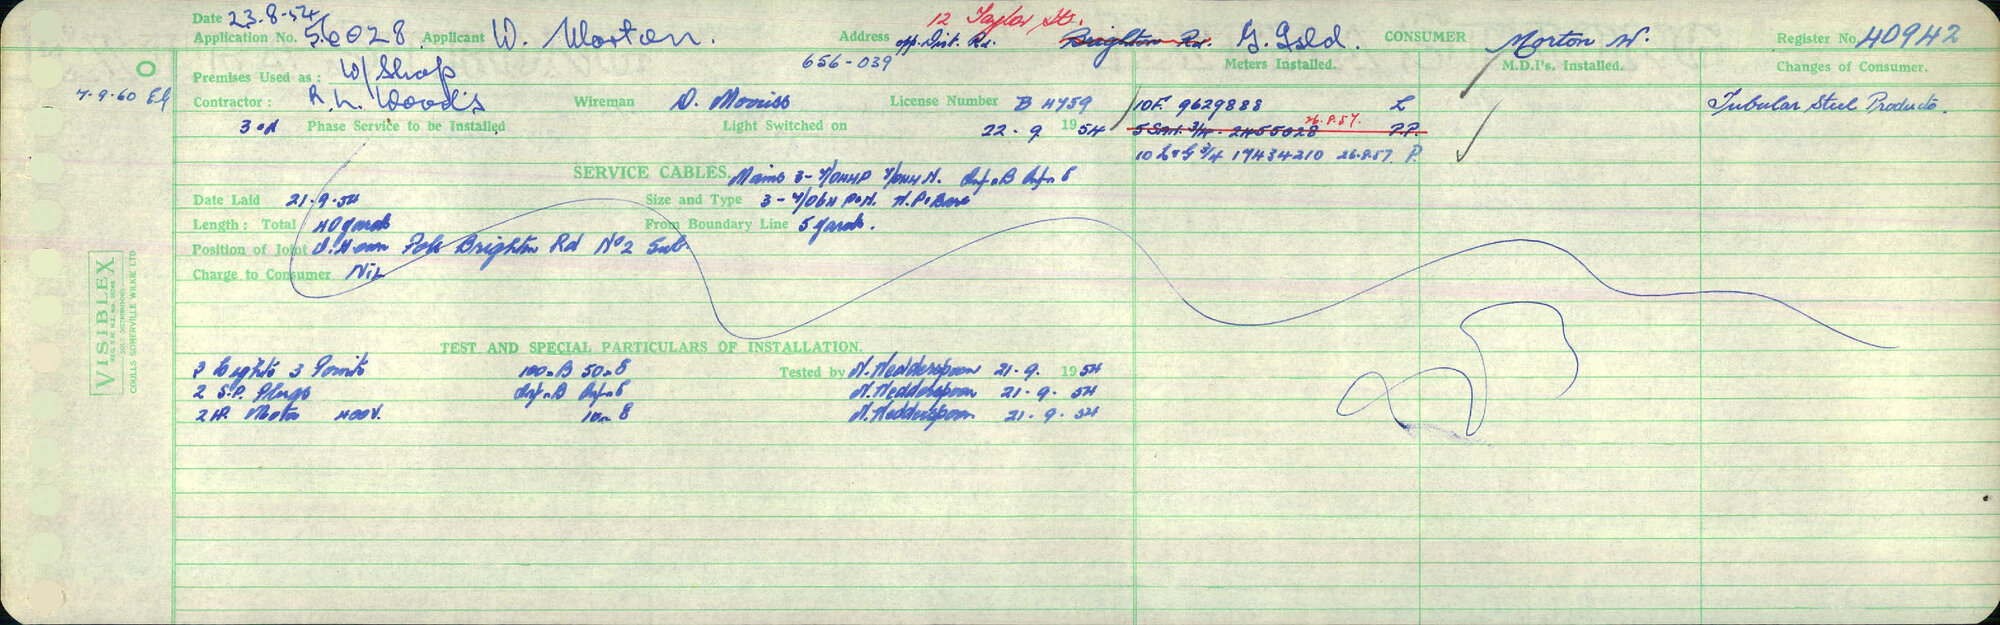 Date 23.8.54 12 Taylor St.
Application No. 56028 Applicant W. Morton. Address opp. Dist. Rd. Brighton Rd. G. Gold. CONSUMER Morton W. Register No. 40942
656-039 Meters Installed. M.D.I's. Installed. Changes of Consumer.
O Premises Used as : W/Shop
7-9-60 Contractor : R. L. Woods Wireman D. Morriss License Number B 4759 10F. 9629888 L Tubular Steel Products.
3 od Phase Service to be Installed Light Switched on 22 - 9 1954 5 3/4 - 2455028 26.8.57. P.P.
10 L&G 3/4 17434210 26.8.57. P.
SERVICE CABLES. Mains 3 - 7/044P 7/044 N. Inf.B Inf.E
Date Laid 21-9-54 Size and Type 3 - 7/064 P&N. N.P. Bare
Length : Total 40 yards From Boundary Line 5 yards.
Position of Joint Pole Brighton Rd No 2 Sub.
Charge to Consumer Nil
VISIBLEX
COULLS SOMERVILLE WILKIE LTD
TEST AND SPECIAL PARTICULARS OF INSTALLATION.
3 Lights 3 Points 100.B 50.E Tested by N. Hedderspoon 21-9. 1954
2 S.P. Plugs Inf.B Inf.E N. Hedderspoon 21-9-54
2 HP. Motor 400V. 10.E N. Hedderspoon 21-9-54